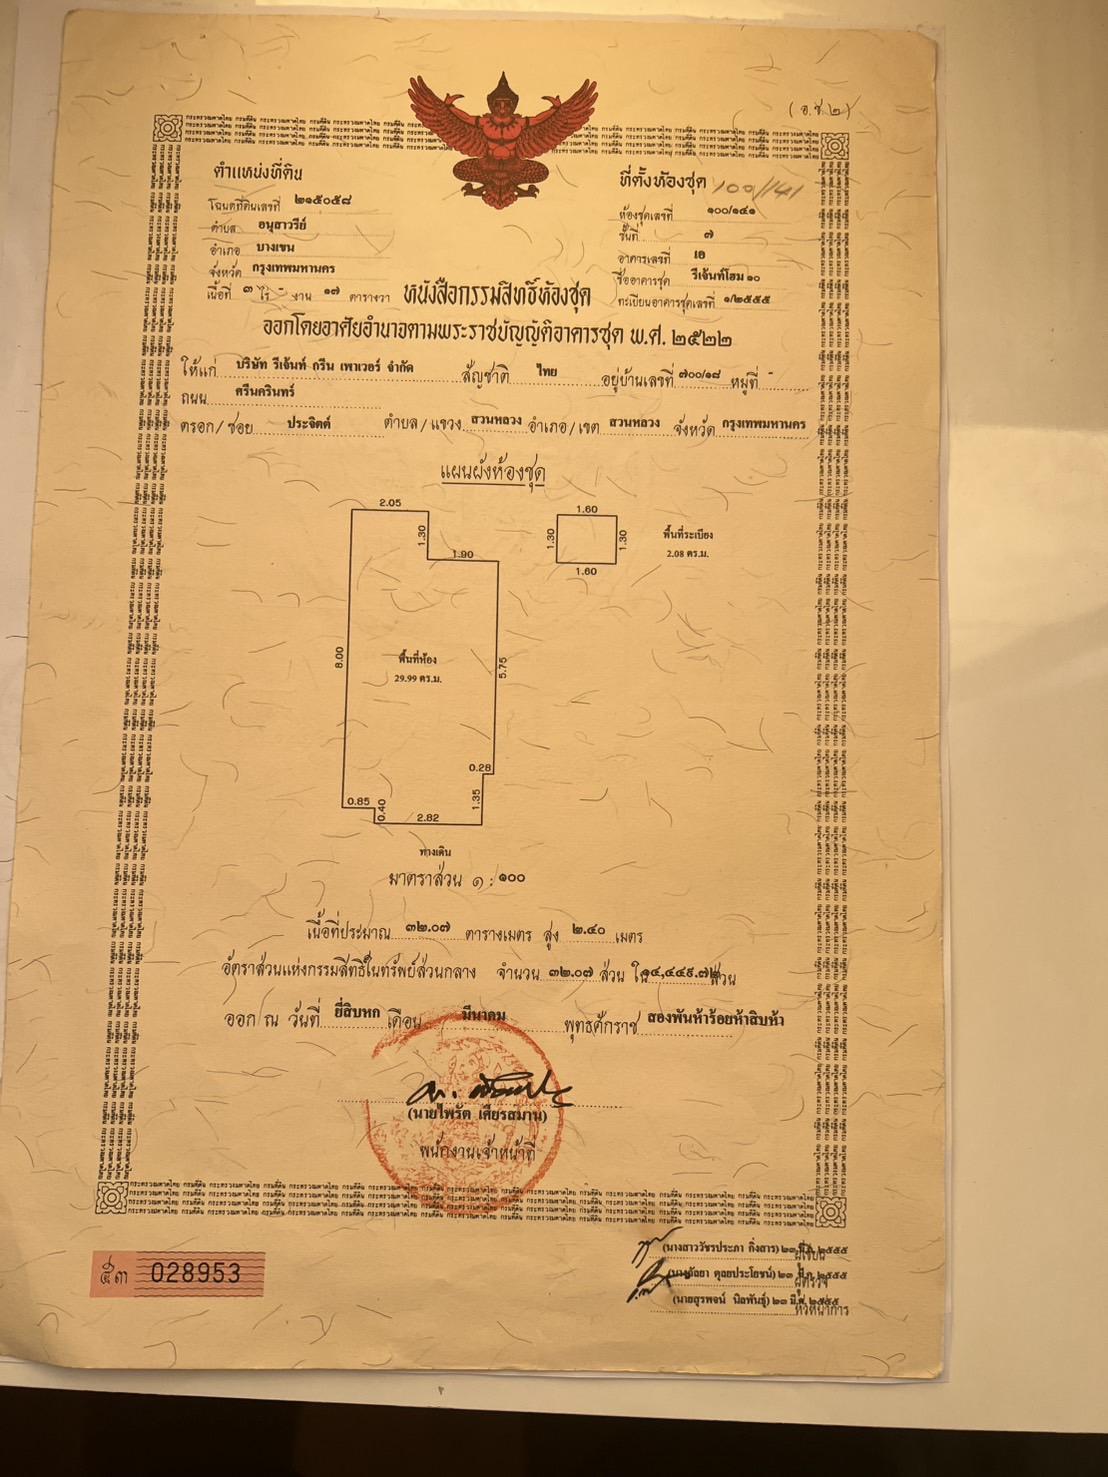 (อ.ช.๒)
ตำแหน่งที่ดิน
โฉนดที่ดินเลขที่ ๒๑๕๐๕๘
ตำบล อนุสาวรีย์
อำเภอ บางเขน
จังหวัด กรุงเทพมหานคร
เนื้อที่ ๓ ไร่ - งาน ๑๗ ตารางวา
ที่ตั้งห้องชุด 100/141
ห้องชุดเลขที่ ๑๐๐/๑๔๑
ชั้นที่ ๗
อาคารเลขที่ เอ
ชื่ออาคารชุด รีเจ้นท์โฮม ๑๐
ทะเบียนอาคารชุดเลขที่ ๑/๒๕๕๕
หนังสือกรรมสิทธิ์ห้องชุด
ออกโดยอาศัยอำนาจตามพระราชบัญญัติอาคารชุด พ.ศ. ๒๕๒๒
ให้แก่ บริษัท รีเจ้นท์ กรีน เพาเวอร์ จำกัด สัญชาติ ไทย อยู่บ้านเลขที่ ๗๐๐/๑๘ หมู่ที่ -
ถนน ศรีนครินทร์
ตรอก/ซอย ประจิตต์ ตำบล/แขวง สวนหลวง อำเภอ/เขต สวนหลวง จังหวัด กรุงเทพมหานคร
แผนผังห้องชุด
2.05
1.30
1.90
8.00
พื้นที่ห้อง
29.99 ตร.ม.
5.75
0.28
1.35
0.85
0.40
2.82
1.60
1.30
1.30
1.60
พื้นที่ระเบียง
2.08 ตร.ม.
ทางเดิน
มาตราส่วน ๑ : ๑๐๐
เนื้อที่ประมาณ ๓๒.๐๗ ตารางเมตร สูง ๒.๔๐ เมตร
อัตราส่วนแห่งกรรมสิทธิ์ในทรัพย์ส่วนกลาง จำนวน ๓๒.๐๗ ส่วน ใน ๑๔,๔๔๙.๗๒ ส่วน
ออก ณ วันที่ ยี่สิบหก เดือน มีนาคม พุทธศักราช สองพันห้าร้อยห้าสิบห้า
(นายไพรัต เศียรสมาน)
พนักงานเจ้าหน้าที่
(นางสาววัชรประภา กิ่งสาร) ๒๓ มี.ค. ๒๕๕๕
ผู้เขียน
ดุลยประโยชน์) ๒๓ มี.ค. ๒๕๕๕
ผู้ตรวจ
(นายสุรพจน์ นิลพันธุ์) ๒๓ มี.ค. ๒๕๕๕
หัวหน้าการ
๕๓ 028953